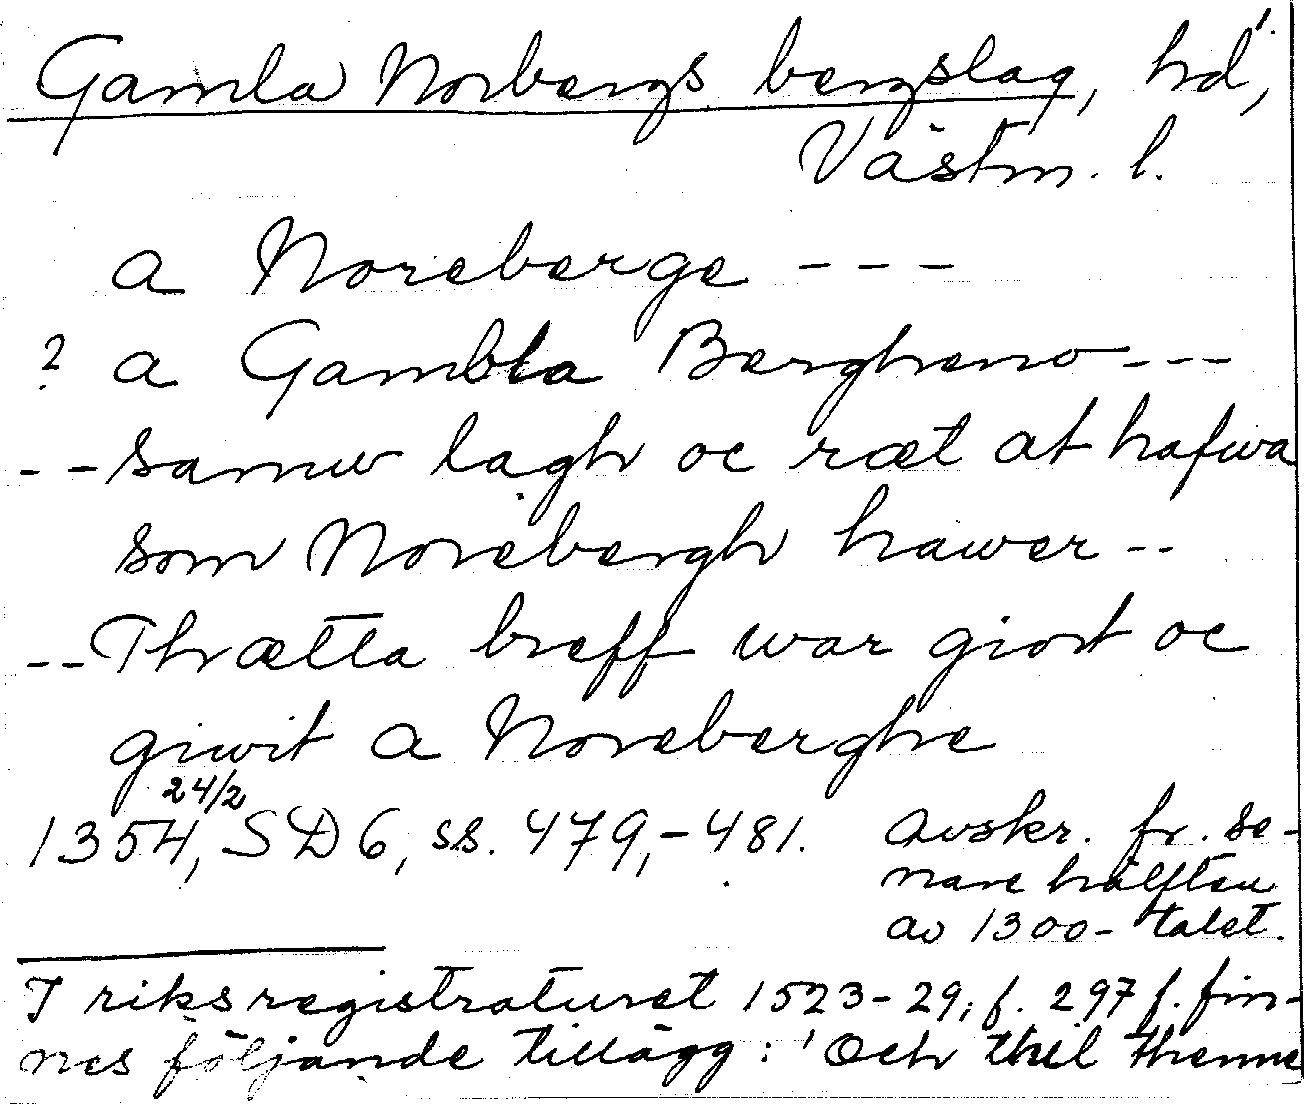 Gamla Norbergs bergslag, hd,
1.
Västm. l.
a Noreberge - - -
? a Gambla Bergheno - - -
- - samw lagh oc ræt at hafwa
som Norebergh hawer - -
- - Thrætta breff war giort oc
giwit a Noreberghe
1354 24/2, SD 6, ss. 479,-481. Avskr. fr. se-
nare hälften
av 1300-talet.
I riksregistraturet 1523-29, f. 297 f. fin-
nes följande tillägg: 'Och thil thenne